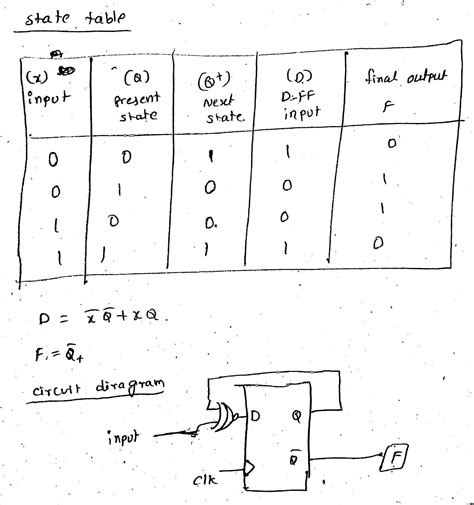 state table
(x) (Q) (Q+) (D) final output
input present Next D-FF F
state state input
0 0 1 1 0
0 1 0 0 1
1 0 0. 0 1
1 1 1 1 0
D = x̅ Q̅ + x Q.
F₁ = Q̅₊
circuit diragram
input D Q
Clk Q̅ F